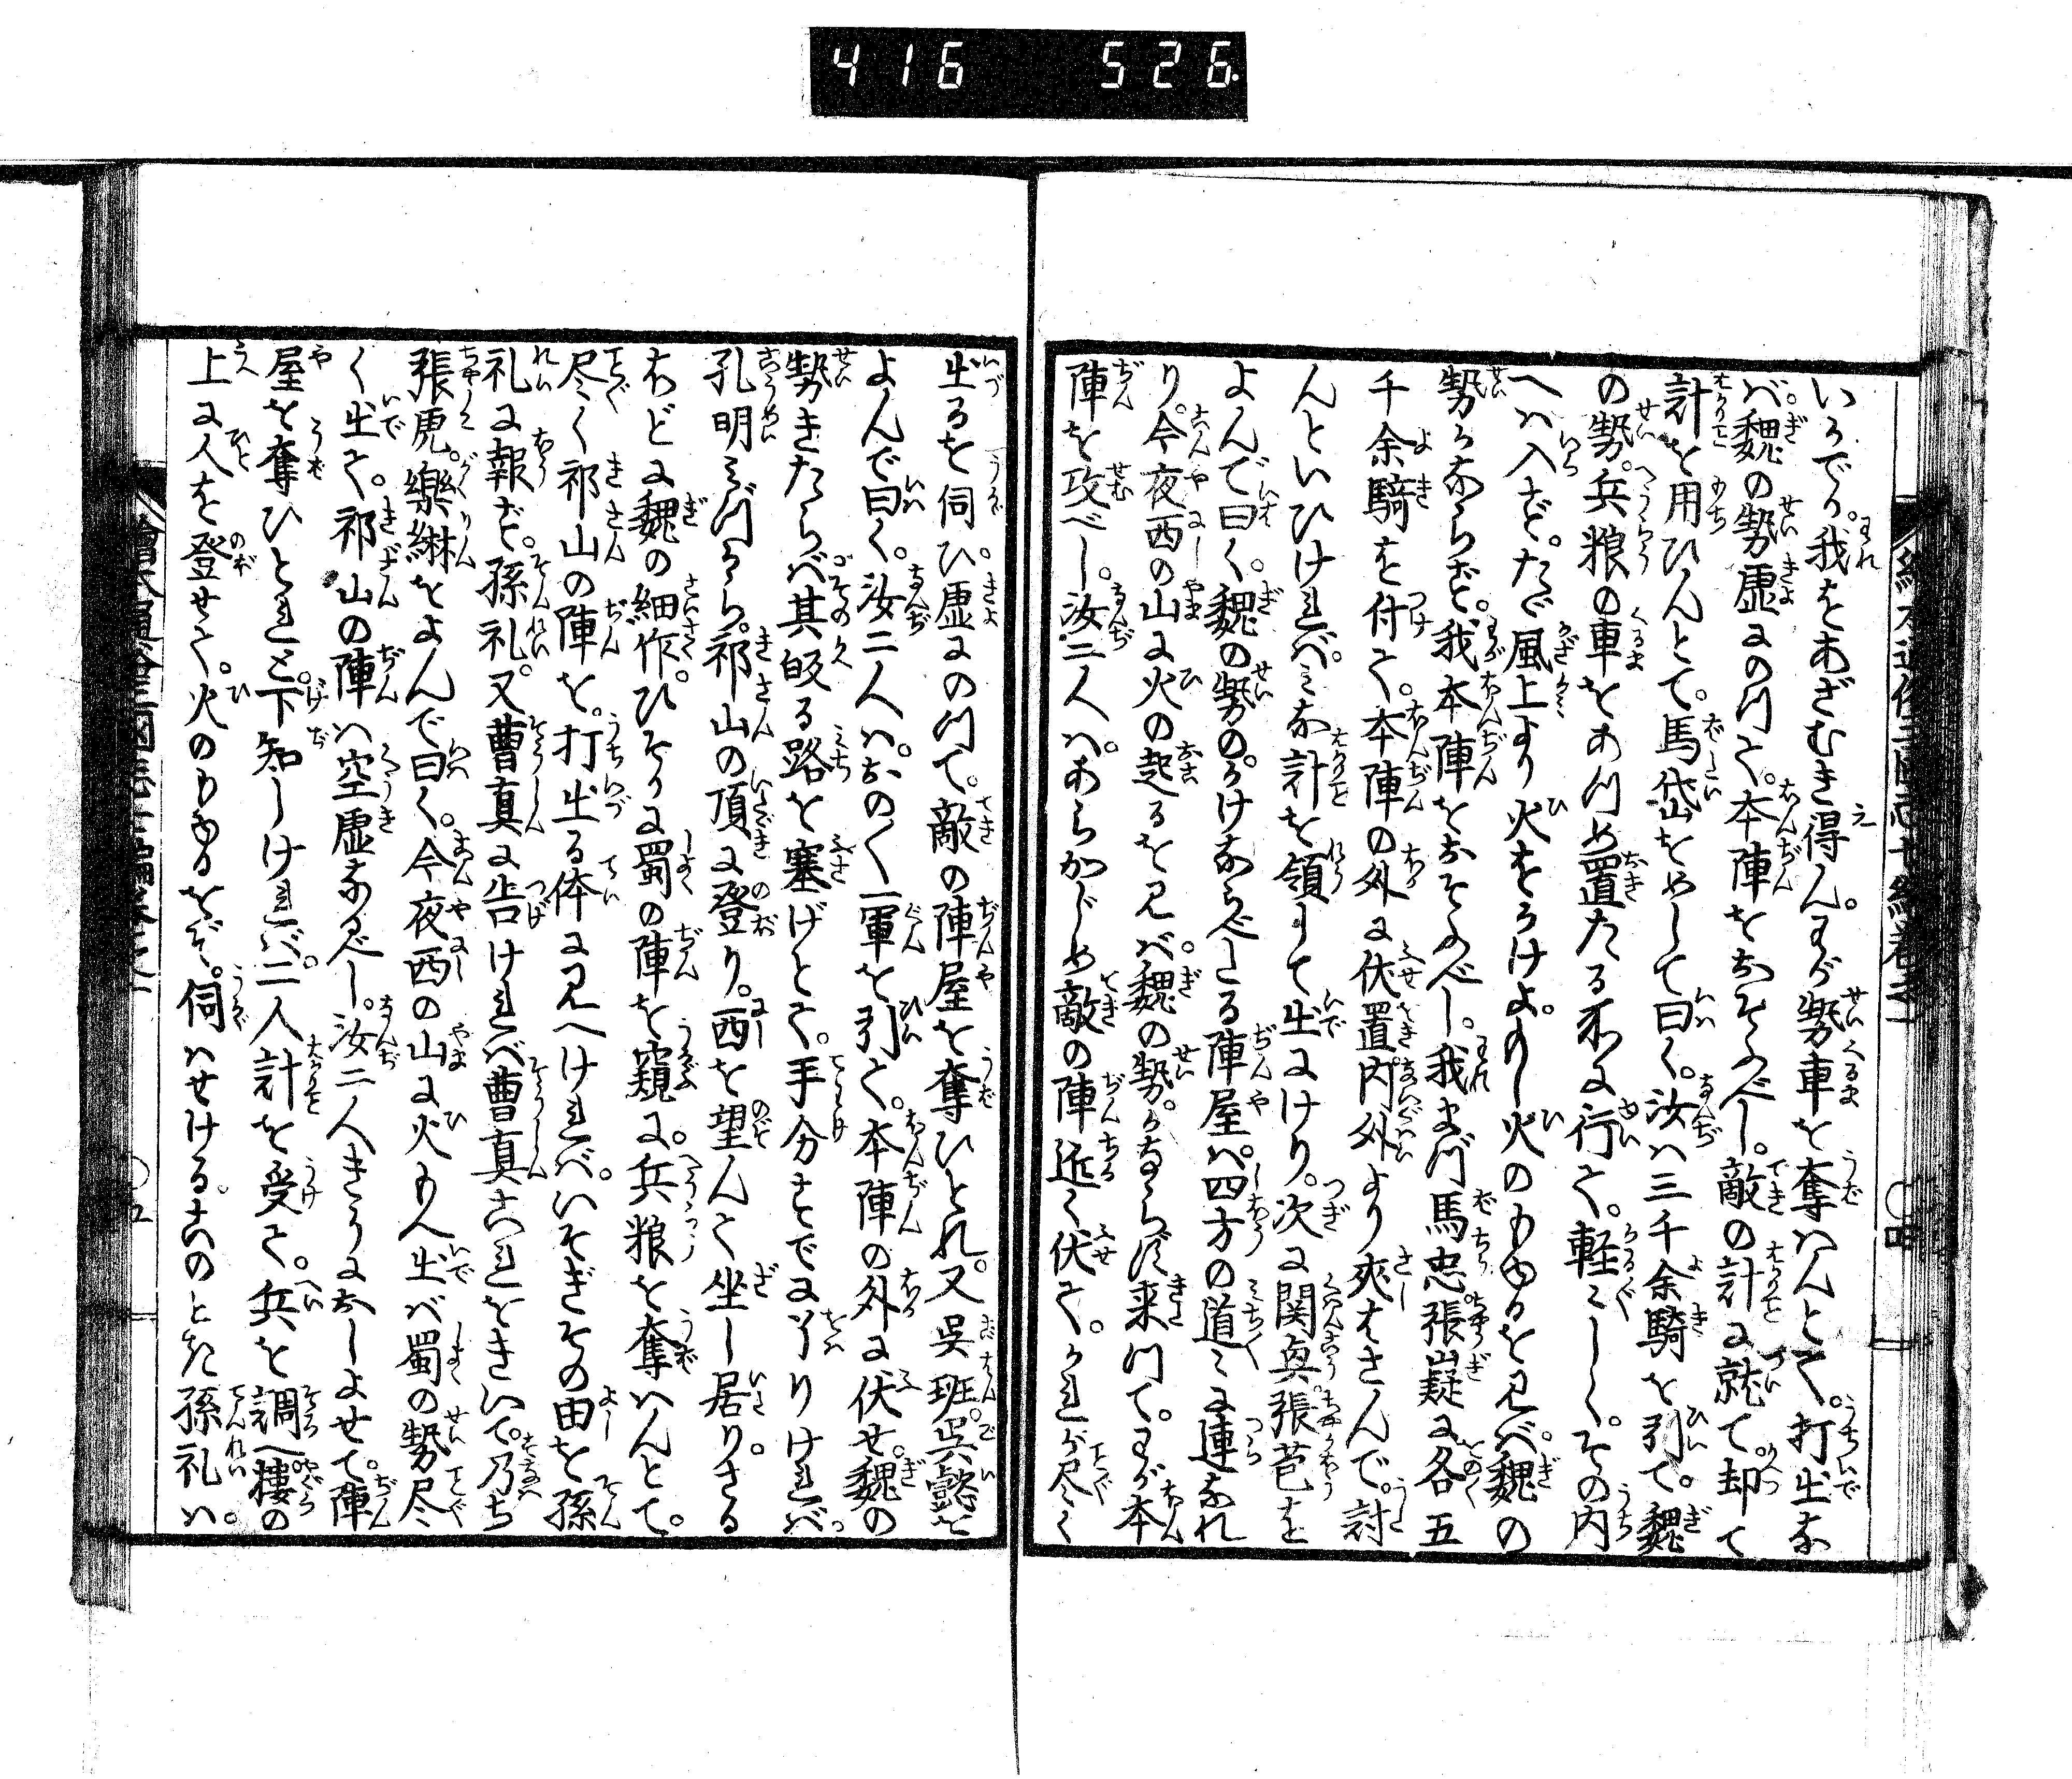 416 526.
いかでか我をあざむき得ん。わが勢車を奪はんとて。打出な
ば。魏の勢虚にのつて。本陣をおそふべし。敵の計に就て。却て
計を用ひんとて。馬岱をめして曰く。汝は三千余騎を引て。魏
の勢。兵粮の車をあつめ置たる所に行て。軽々しく。その内
へは入ず。たゞ風上より火をかけよ。もし火のもゆるを見ば。魏の
勢かならず。我本陣をおそふべし。我まづ馬忠。張嶷に各五
千余騎を付て。本陣の外に伏置。内外より夾はさんで。討
んといひければ。みな計を領して出にけり。次に関興。張苞を
よんで曰く。魏の勢の。かけならべたる陣屋は。四方の道々に連なれ
り。今夜西の山に火の起るを見ば。魏の勢。かならず来つて。わが本
陣を攻べし。汝二人は。あらかじめ敵の陣近く伏て。かれが尽く
出るを伺ひ。虚にのつて。敵の陣屋を奪ひとれ。又呉班。呉懿を
よんで曰く。汝二人は。おの〱一軍を引て。本陣の外に伏せ。魏の
勢きたらば。其皈る路を塞げとて。手分すでに了りければ。
孔明みづから。祁山の頂に登り。西を望んで坐し居り。さる
ほどに魏の細作。ひそかに蜀の陣を窺に。兵粮を奪はんとて。
尽く祁山の陣を。打出る体に見へければ。いそぎその由を孫
礼に報ず。孫礼。又曹真に告ければ曹真これをきいて。乃ち
張虎。樂綝をよんで曰く。今夜西の山に火もへ出ば蜀の勢尽
く出て。祁山の陣は空虚なるべし。汝二人きうにおしよせて。陣
屋を奪ひとれと。下知しければ。二人計を受て。兵を調へ。楼の
上に人を登せて。火のもゆるをぞ。伺はせける。このとき孫礼は。
四
五